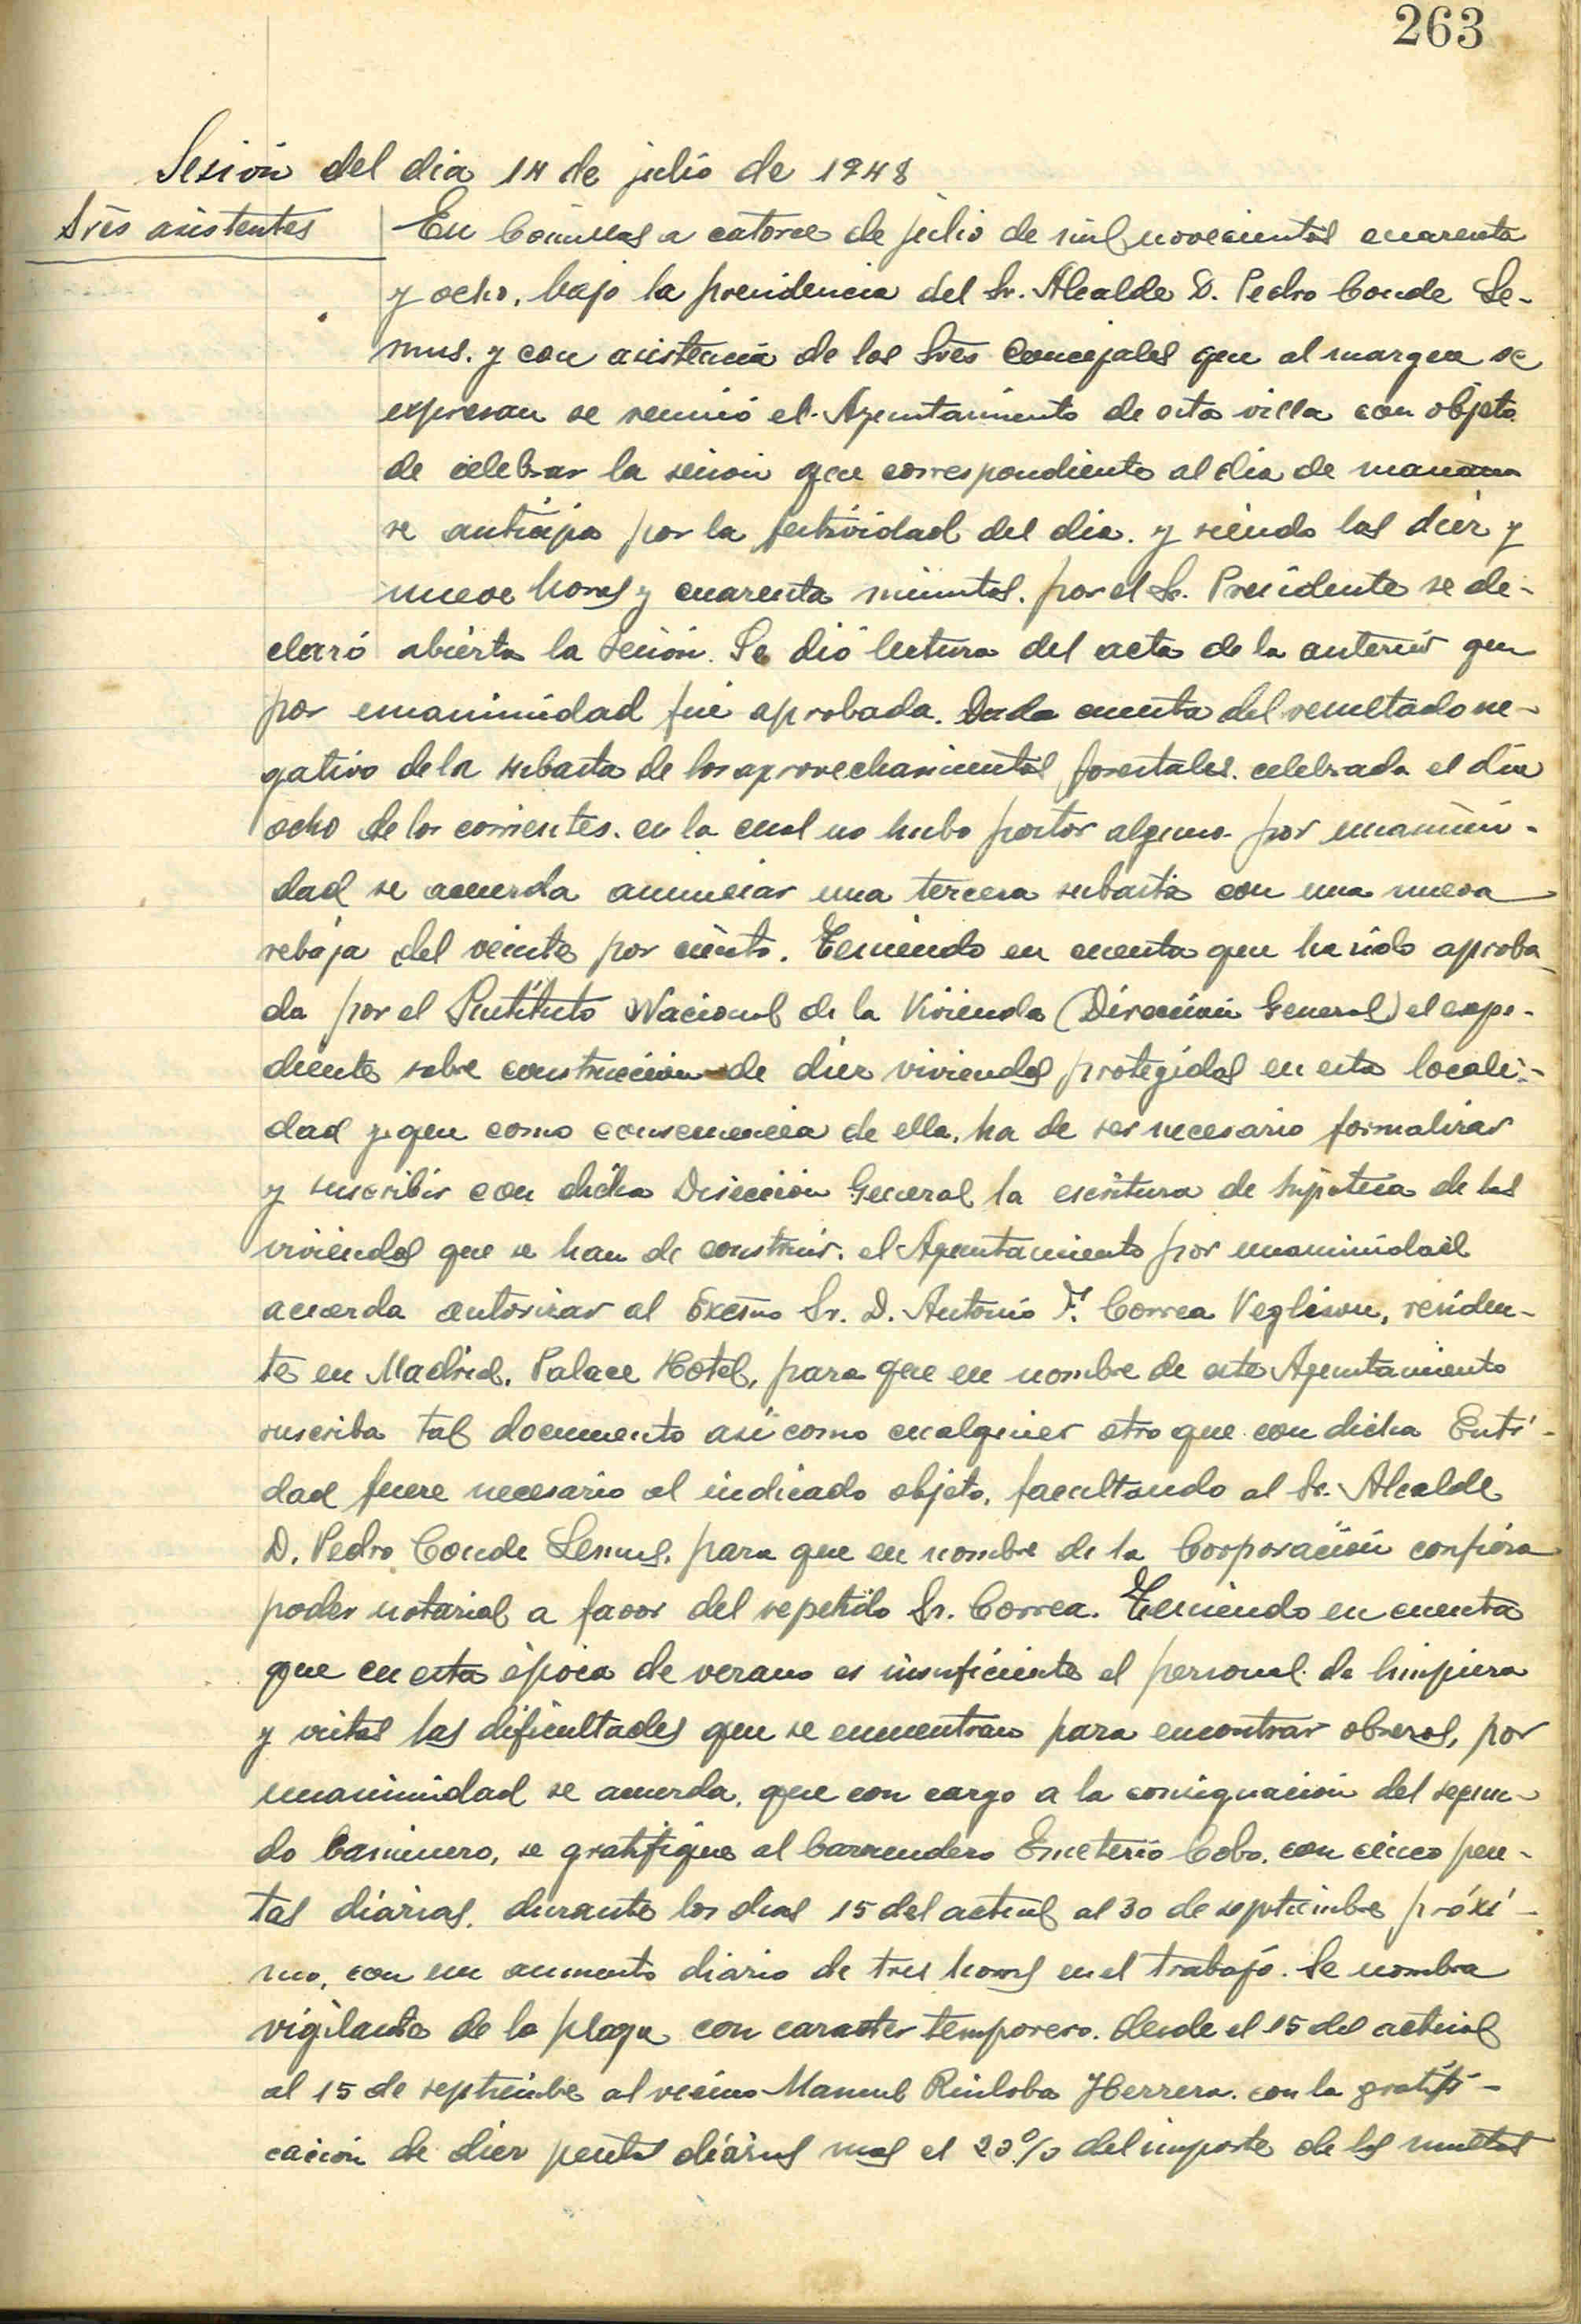 263
Sesión del dia 14 de julio de 1948
Sres asistentes
En Comillas a catorce de julio de mil novecientos cuarenta
y ocho, bajo la presidencia del Sr. Alcalde D. Pedro Conde Le-
mus. y con asistencia de los Sres Concejales que al margen se
expresan se reunió el Ayuntamiento de esta villa con objeto
de celebrar la sesion que correspondiente al dia de manana
se anticipa por la festividad del dia. y siendo las diez y
nueve horas y cuarenta minutos. por el Sr. Presidente se de-
claró abierta la sesión. Se dió lectura del acta de la anterior que
por unanimidad fue aprobada. Dada cuenta del resultado ne-
gativo de la subasta de los aprovechamientos forestales. celebrada el dia
ocho de los corrientes. en la cual no hubo postor alguno. por unanimi-
dad se acuerda anunciar una tercera subasta con una nueva
rebaja del veinte por ciento. Teniendo en cuenta que ha sido aproba
da por el Instituto Nacional de la Vivienda (Dirección General) el expe-
diente sobre construcción de diez viviendas protegidas en esta locali-
dad y que como consecuencia de ella, ha de ser necesario formalizar
y suscribir con dicha Dirección General la escritura de hipoteca de las
viviendas que se han de construir. el Ayuntamiento por unanimidad
acuerda autorizar al Excmo Sr. D. Antonio F. Correa Veglison, residen-
te en Madrid. Palace Hotel, para que en nombre de este Ayuntamiento
suscriba tal documento así como cualquier otro que con dicha Enti-
dad fuere necesario al indicado objeto, facultando al Sr. Alcalde
D. Pedro Conde Lemus, para que en nombre de la Corporación confiera
poder notarial a favor del repetido Sr. Correa. Teniendo en cuenta
que en esta época de verano es insuficiente el personal de limpieza
y vistas las dificultades que se encuentran para encontrar obreros, por
unanimidad se acuerda. que con cargo a la consignacion del segun-
do Caminero, se gratifique al barrendero Emeterio Cobo. con cinco pese-
tas diarias. durante los dias 15 del actual al 30 de septiembre próxi-
mo, con un aumento diario de tres horas en el trabajo. Se nombra
vigilante de la playa con caracter temporero. desde el 15 del actual
al 15 de septiembre al vecino Manuel Ruiloba Herrera. con la gratifi-
cación de diez pesetas diarias mas el 20% del importe de las multas